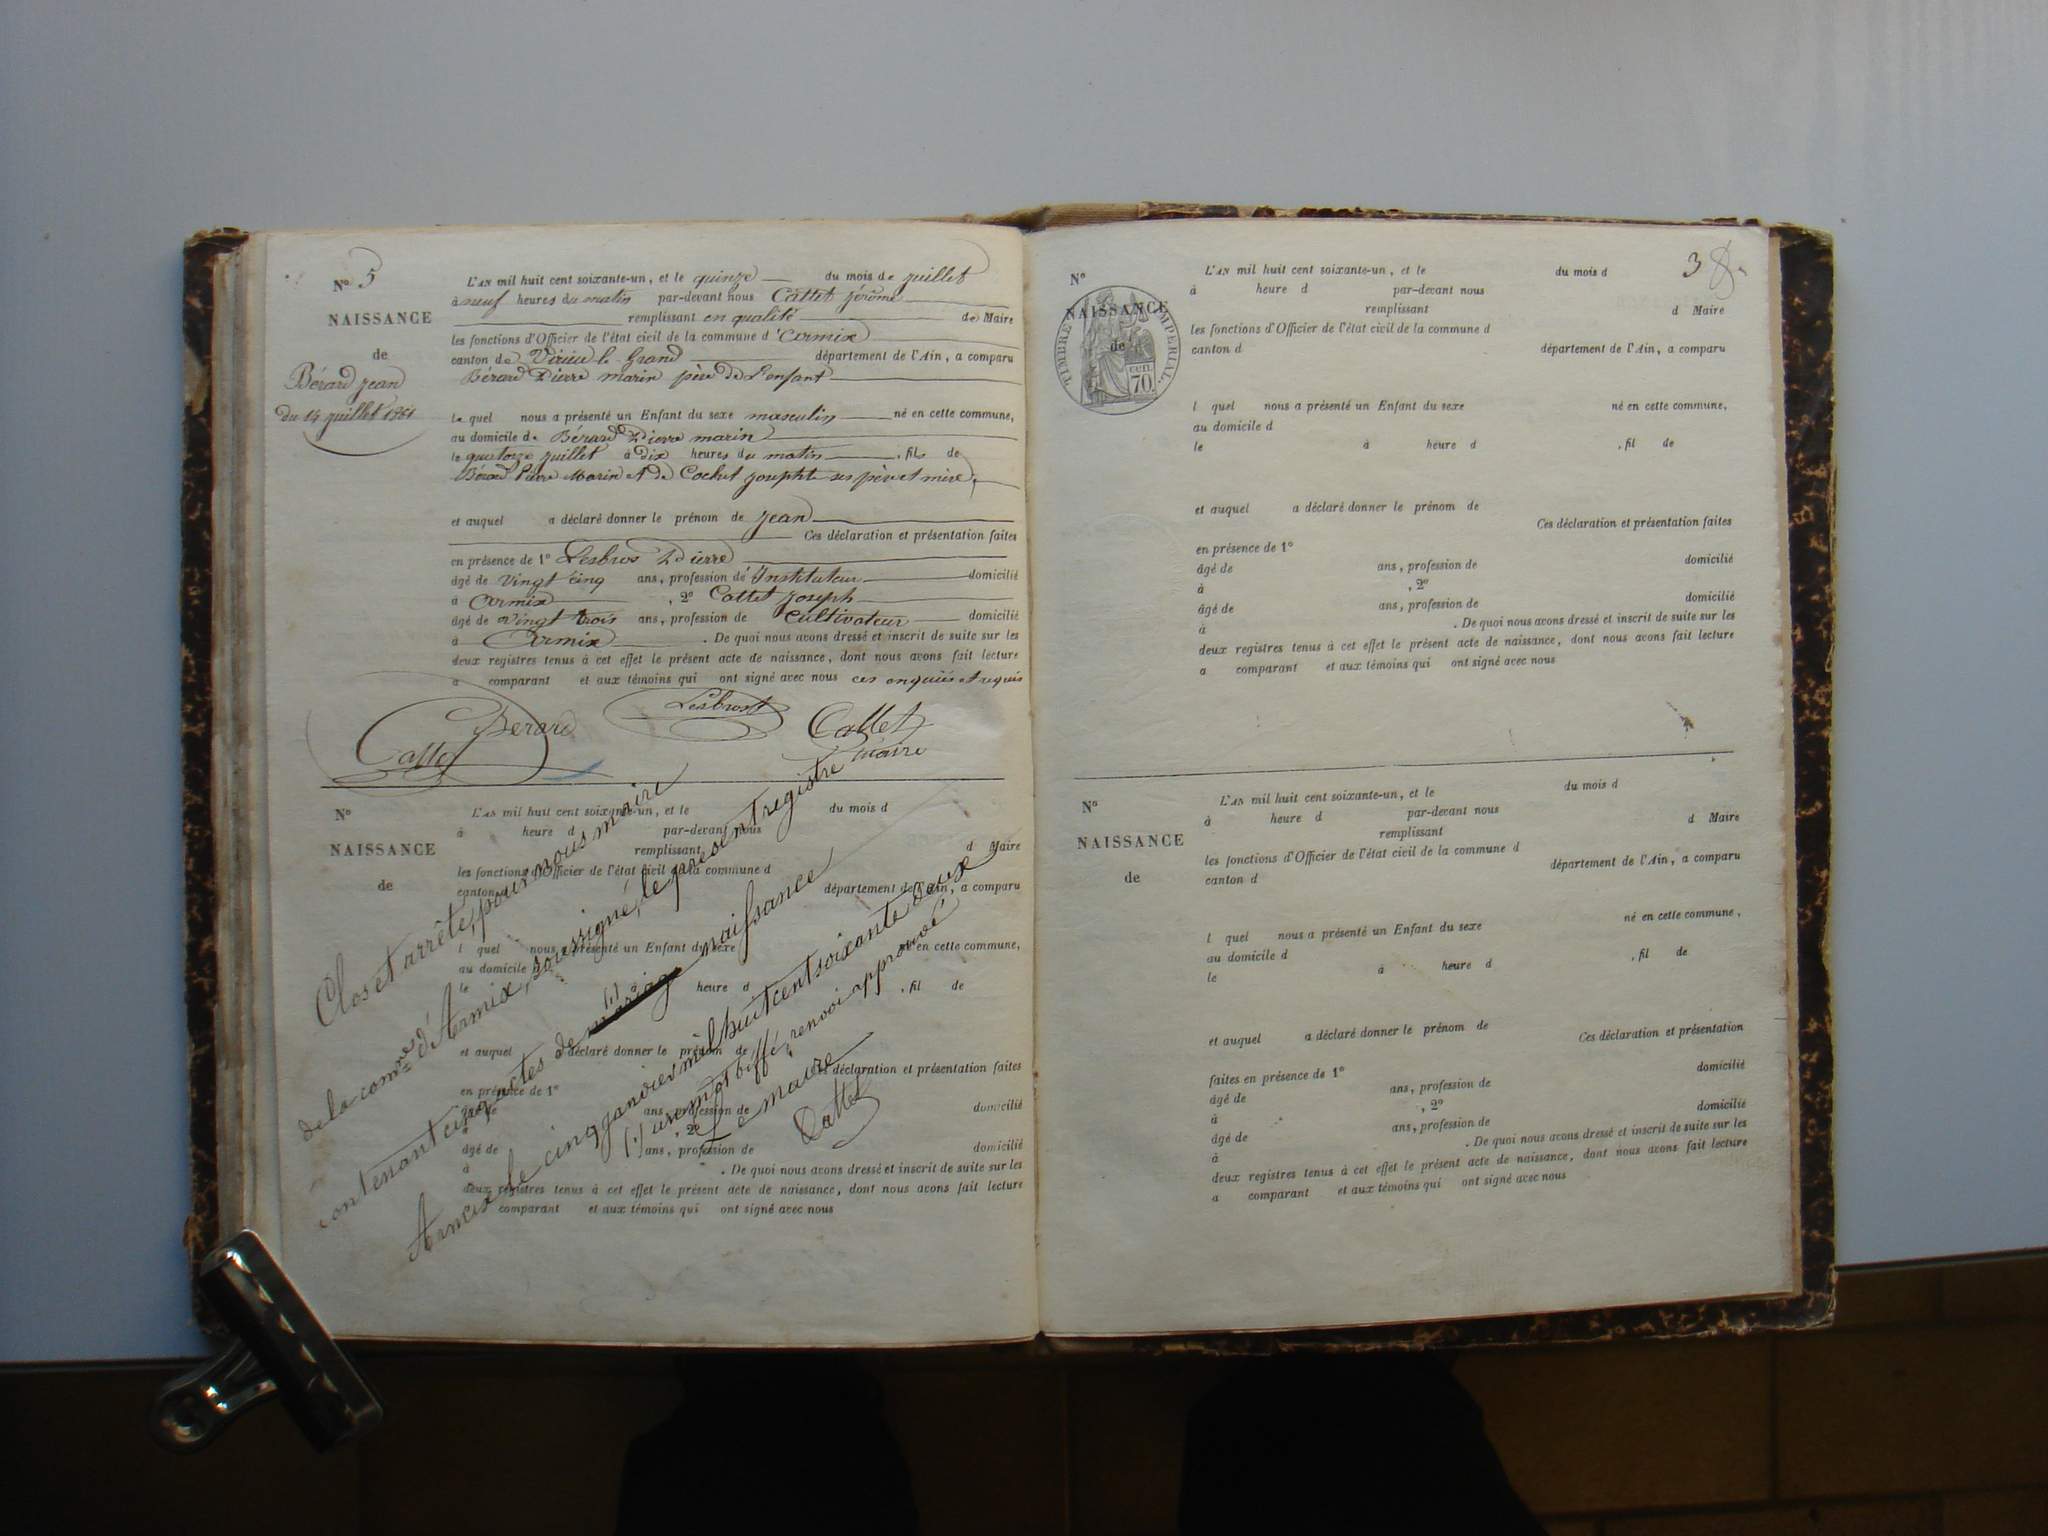 N° 5
NAISSANCE
de
Bérard Jean
du 14 juillet 1861
L'AN mil huit cent soixante-un, et le quinze du mois de juillet
à neuf heures du matin par-devant nous Cattet Jérôme
remplissant en qualité de Maire
les fonctions d'Officier de l'état civil de la commune d'Armix
canton de Virieu le Grand département de l'Ain, a comparu
Bérard Pierre marin père de l'enfant
le quel nous a présenté un Enfant du sexe masculin né en cette commune,
au domicile de Bérard Pierre marin
le quatorze juillet à dix heures du matin, fils de
Bérard Pierre Marin et de Cochet Josephte ses père et mère,
et auquel a déclaré donner le prénom de Jean
Ces déclaration et présentation faites
en présence de 1° Lesbros Pierre
âgé de vingt cinq ans, profession d'Instituteur domicilié
à Armix, 2° Cattet Joseph
âgé de vingt trois ans, profession de cultivateur domicilié
à Armix. De quoi nous avons dressé et inscrit de suite sur les
deux registres tenus à cet effet le présent acte de naissance, dont nous avons fait lecture
a comparant et aux témoins qui ont signé avec nous ces enquiis et requis
Lesbros
Bérard
Cattet
Cattet
maire
N°
NAISSANCE
de
L'AN mil huit cent soixante-un, et le du mois d
à heure d par-devant nous
remplissant d Maire
les fonctions d'Officier de l'état civil de la commune d
canton d département de l'Ain, a comparu
l quel nous a présenté un Enfant du sexe né en cette commune,
au domicile d
le à heure d , fil de
et auquel a déclaré donner le prénom de
Ces déclaration et présentation faites
en présence de 1°
âgé de ans, profession de domicilié
à , 2°
âgé de ans, profession de domicilié
à . De quoi nous avons dressé et inscrit de suite sur les
deux registres tenus à cet effet le présent acte de naissance, dont nous avons fait lecture
a comparant et aux témoins qui ont signé avec nous
Clos et arrêté, par nous maire
de la comne d'Armix, soussigné, le présent registre
contenant cinq actes de mariage (1) naissance
Armix le cinq janvier mil huit cent soixante deux
(1) un mot biffé, renvoi approuvé
Le maire
Cattet
3 8
N°
NAISSANCE
de
TIMBRE IMPERIAL.
CEN.
70.
L'AN mil huit cent soixante-un, et le du mois d
à heure d par-devant nous
remplissant d Maire
les fonctions d'Officier de l'état civil de la commune d
canton d département de l'Ain, a comparu
l quel nous a présenté un Enfant du sexe né en cette commune,
au domicile d
le à heure d , fil de
et auquel a déclaré donner le prénom de
Ces déclaration et présentation faites
en présence de 1°
âgé de ans, profession de domicilié
à , 2°
âgé de ans, profession de domicilié
à . De quoi nous avons dressé et inscrit de suite sur les
deux registres tenus à cet effet le présent acte de naissance, dont nous avons fait lecture
a comparant et aux témoins qui ont signé avec nous
N°
NAISSANCE
de
L'AN mil huit cent soixante-un, et le du mois d
à heure d par-devant nous
remplissant d Maire
les fonctions d'Officier de l'état civil de la commune d
canton d département de l'Ain, a comparu
l quel nous a présenté un Enfant du sexe né en cette commune,
au domicile d
le à heure d , fil de
et auquel a déclaré donner le prénom de
Ces déclaration et présentation
faites en présence de 1°
âgé de ans, profession de domicilié
à , 2°
âgé de ans, profession de domicilié
à . De quoi nous avons dressé et inscrit de suite sur les
deux registres tenus à cet effet le présent acte de naissance, dont nous avons fait lecture
a comparant et aux témoins qui ont signé avec nous